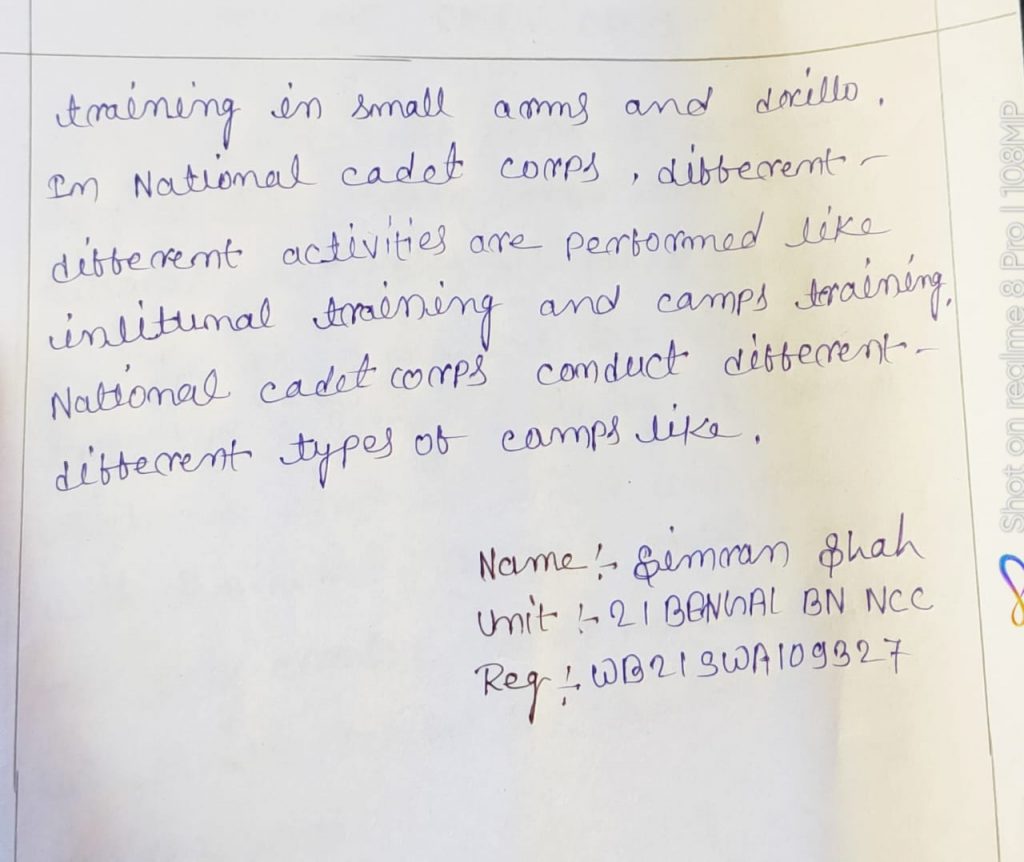 training in small arms and drills.
In National cadet corps, different-
different activities are performed like
institunal training and camps training.
National cadet corps conduct different-
different types of camps like.
Name :- Simran Shah
Unit :- 21 BENGAL BN NCC
Reg :- WB21SWA109327
Shot on realme 8 Pro | 108MP